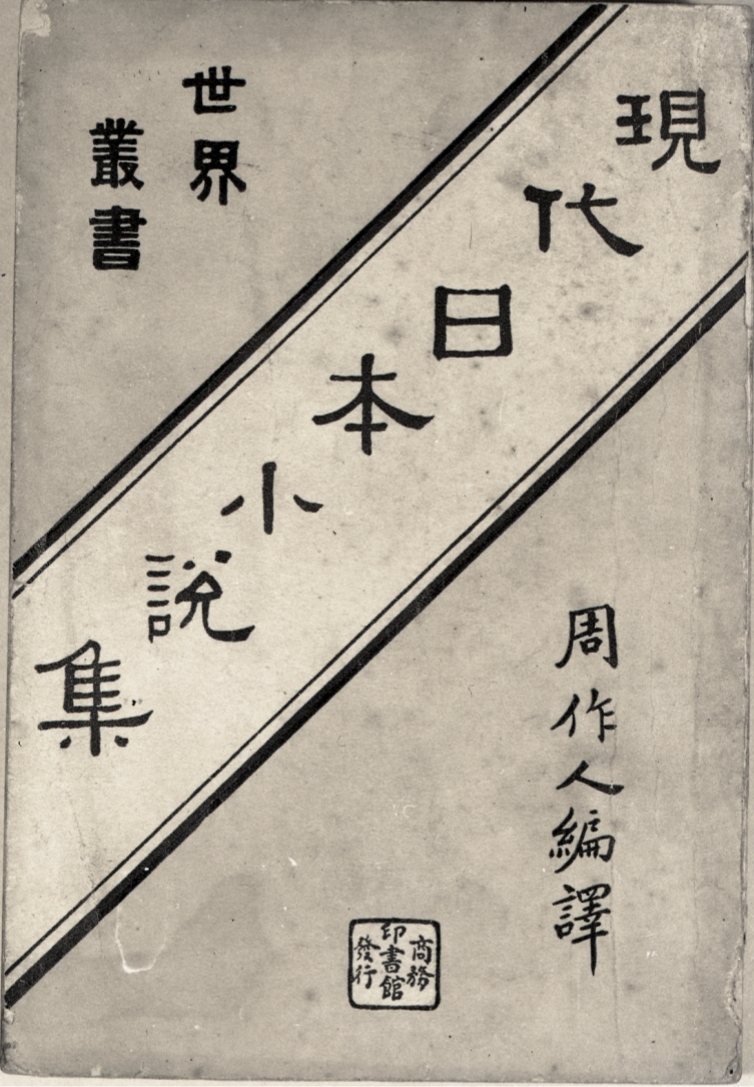 世界
叢書
現代日本小説集
周作人編譯
商務
印書館
發行